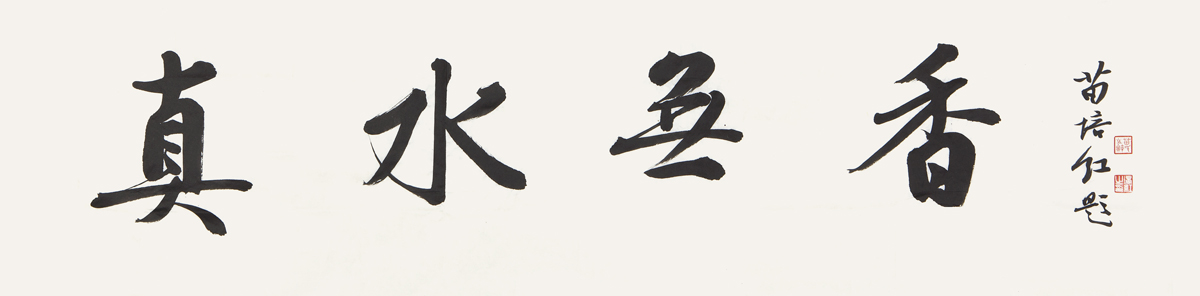 真水無香
苗培红題